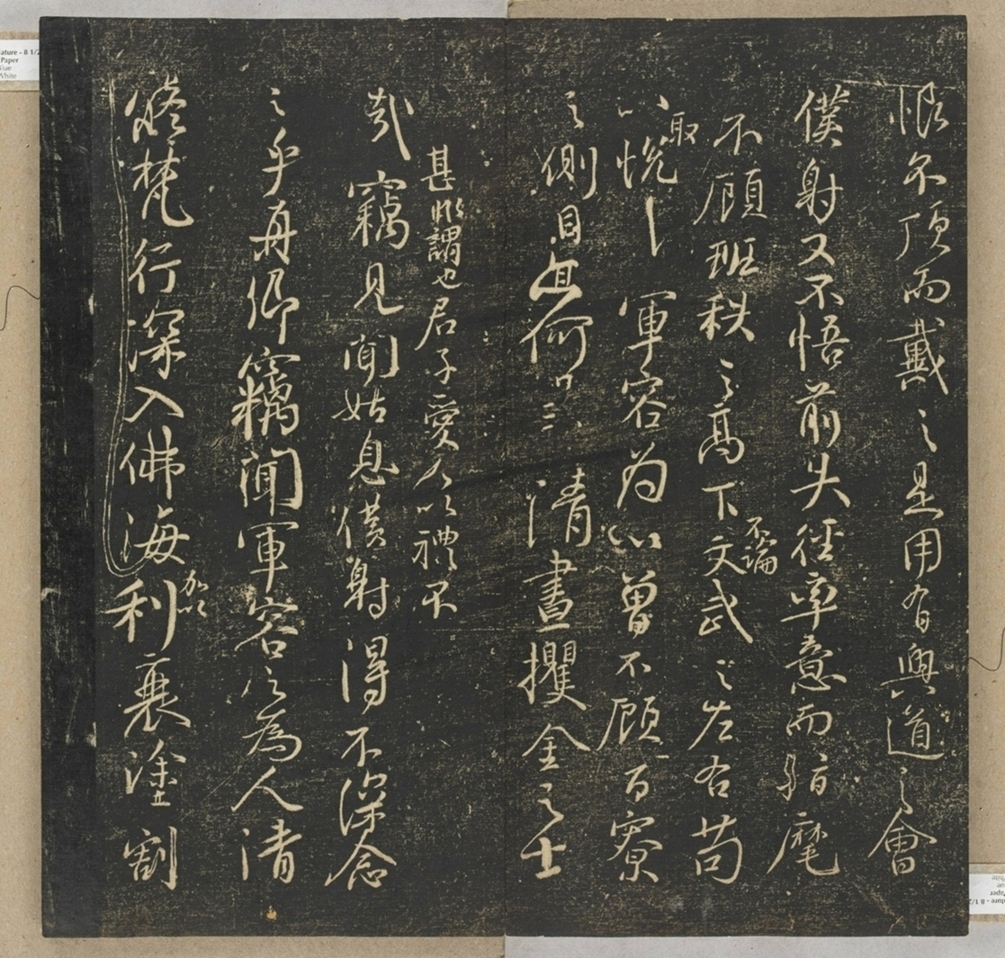 恨不頂而戴之是用有興道之會
僕射又不悟前失徑率意而指麾
不顧班秩之高下不論文武之左右苟
以取悅軍容為心曾不顧百寮
之側目亦何異清晝攫金之士
甚非謂也君子愛人以禮不
哉竊見聞姑息僕射得不深念
之乎真卿竊聞軍容之為人清
修梵行深入佛海加以利衰塗割
ature - 8 1/2
Paper
White